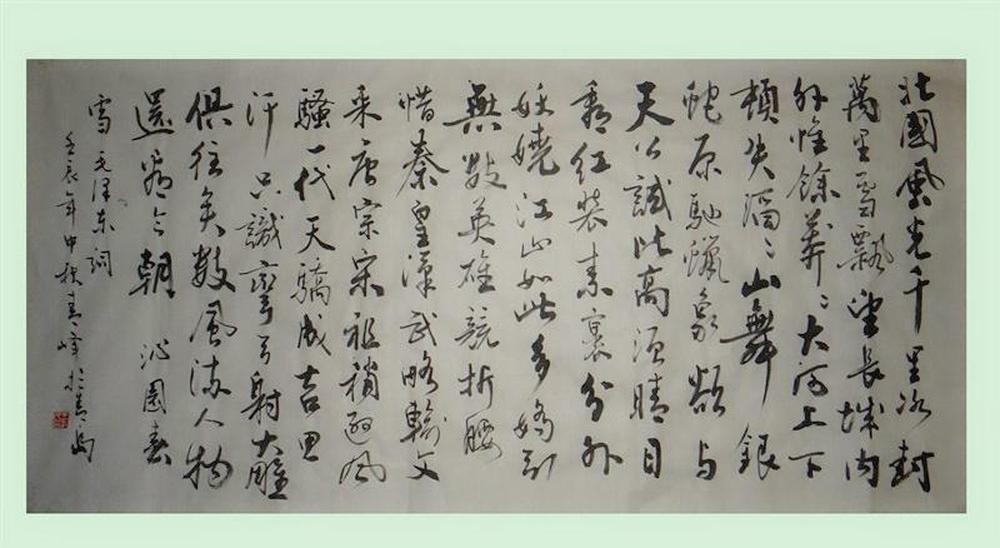 北國風光千里冰封
萬里雪飄望長城內
外惟餘莽〻大河上下
頓失滔〻山舞銀
蛇原馳蠟象欲與
天公試比高須晴日
看紅裝素裹分外
妖嬈江山如此多嬌引
無數英雄競折腰
惜秦皇漢武略輸文
采唐宗宋祖稍遜風
騷一代天驕成吉思
汗只識彎弓射大雕
俱往矣數風流人物
還看今朝 沁園春
雪 毛澤東詞
壬辰年中秋青峰於青島